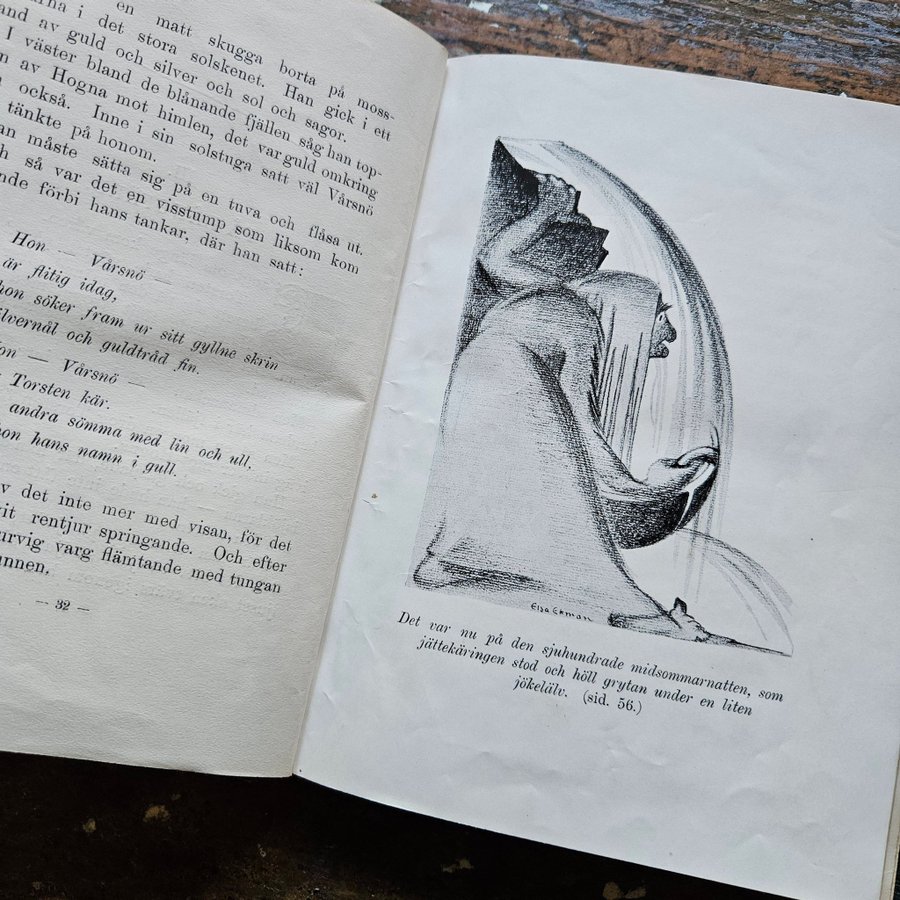 en matt skugga borta på moss-
i det stora solskenet. Han gick i ett
land av guld och silver och sol och sagor.
I väster bland de blånande fjällen såg han top-
av Hogna mot himlen, det var guld omkring
också. Inne i sin solstuga satt väl Vårsnö
tänkte på honom.
måste sätta sig på en tuva och flåsa ut.
så var det en visstump som liksom kom
förbi hans tankar, där han satt:
Hon — Vårsnö —
är flitig idag,
hon söker fram ur sitt gyllne skrin
silvernål och guldtråd fin.
Hon — Vårsnö —
Torsten kär.
andra sömma med lin och ull,
hon hans namn i gull.
det inte mer med visan, för det
rentjur springande. Och efter
varg flämtande med tungan
— 32 —
Elsa Ekman
Det var nu på den sjuhundrade midsommarnatten, som
jättekäringen stod och höll grytan under en liten
jökelälv. (sid. 56.)